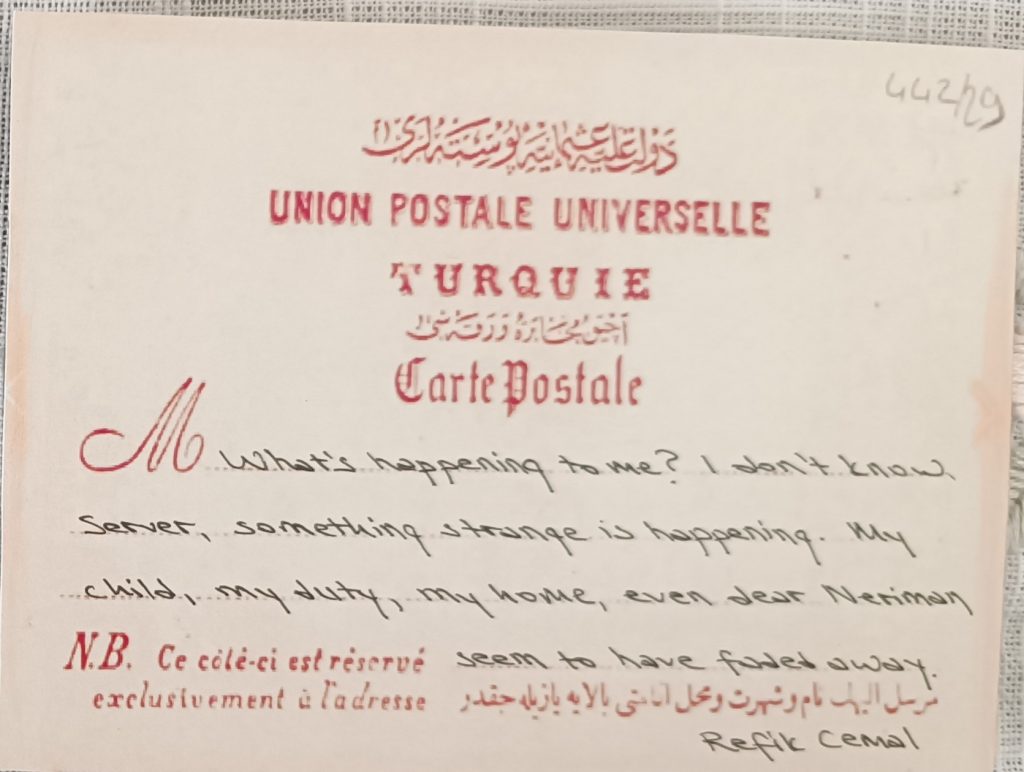 442/29
دولت علیه عثمانیه پوسته لری
UNION POSTALE UNIVERSELLE
TURQUIE
آچیق مخابره ورقه سی
Carte Postale
M What's happening to me? I don't know
Server, something strange is happening. My
child, my duty, my home, even dear Neriman
seem to have faded away.
N.B. Ce côté-ci est réservé
exclusivement à l'adresse
مرسل الیهك نام و شهرت و محل اقامتی بالایه یازیله جقدر
Refik Cemal